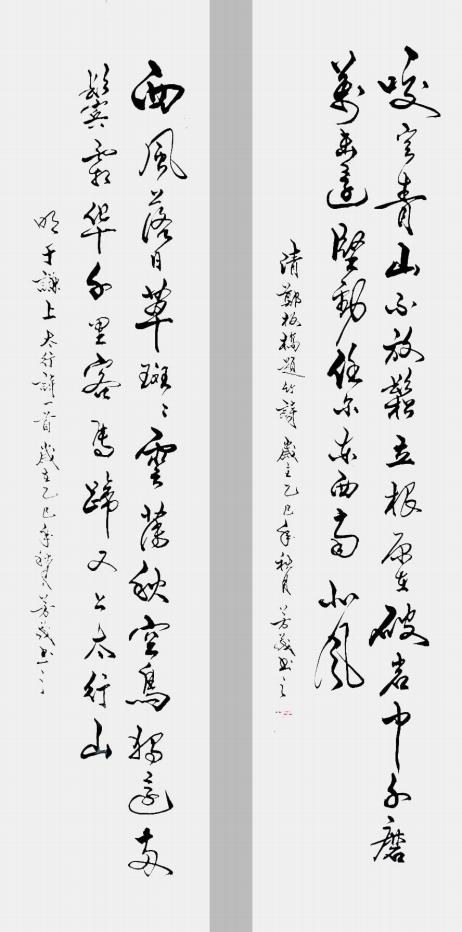 咬定青山不放鬆立根原在破岩中千磨
萬击還堅勁任尔东西南北風
清鄭板橋題竹詩 歲在乙巳年秋月 書之
西風落日草斑〻雲薄秋空鳥獨還兩
鬢霜华千里客馬蹄又上太行山
明于謙上太行詩一首歲在乙巳年秋月書之